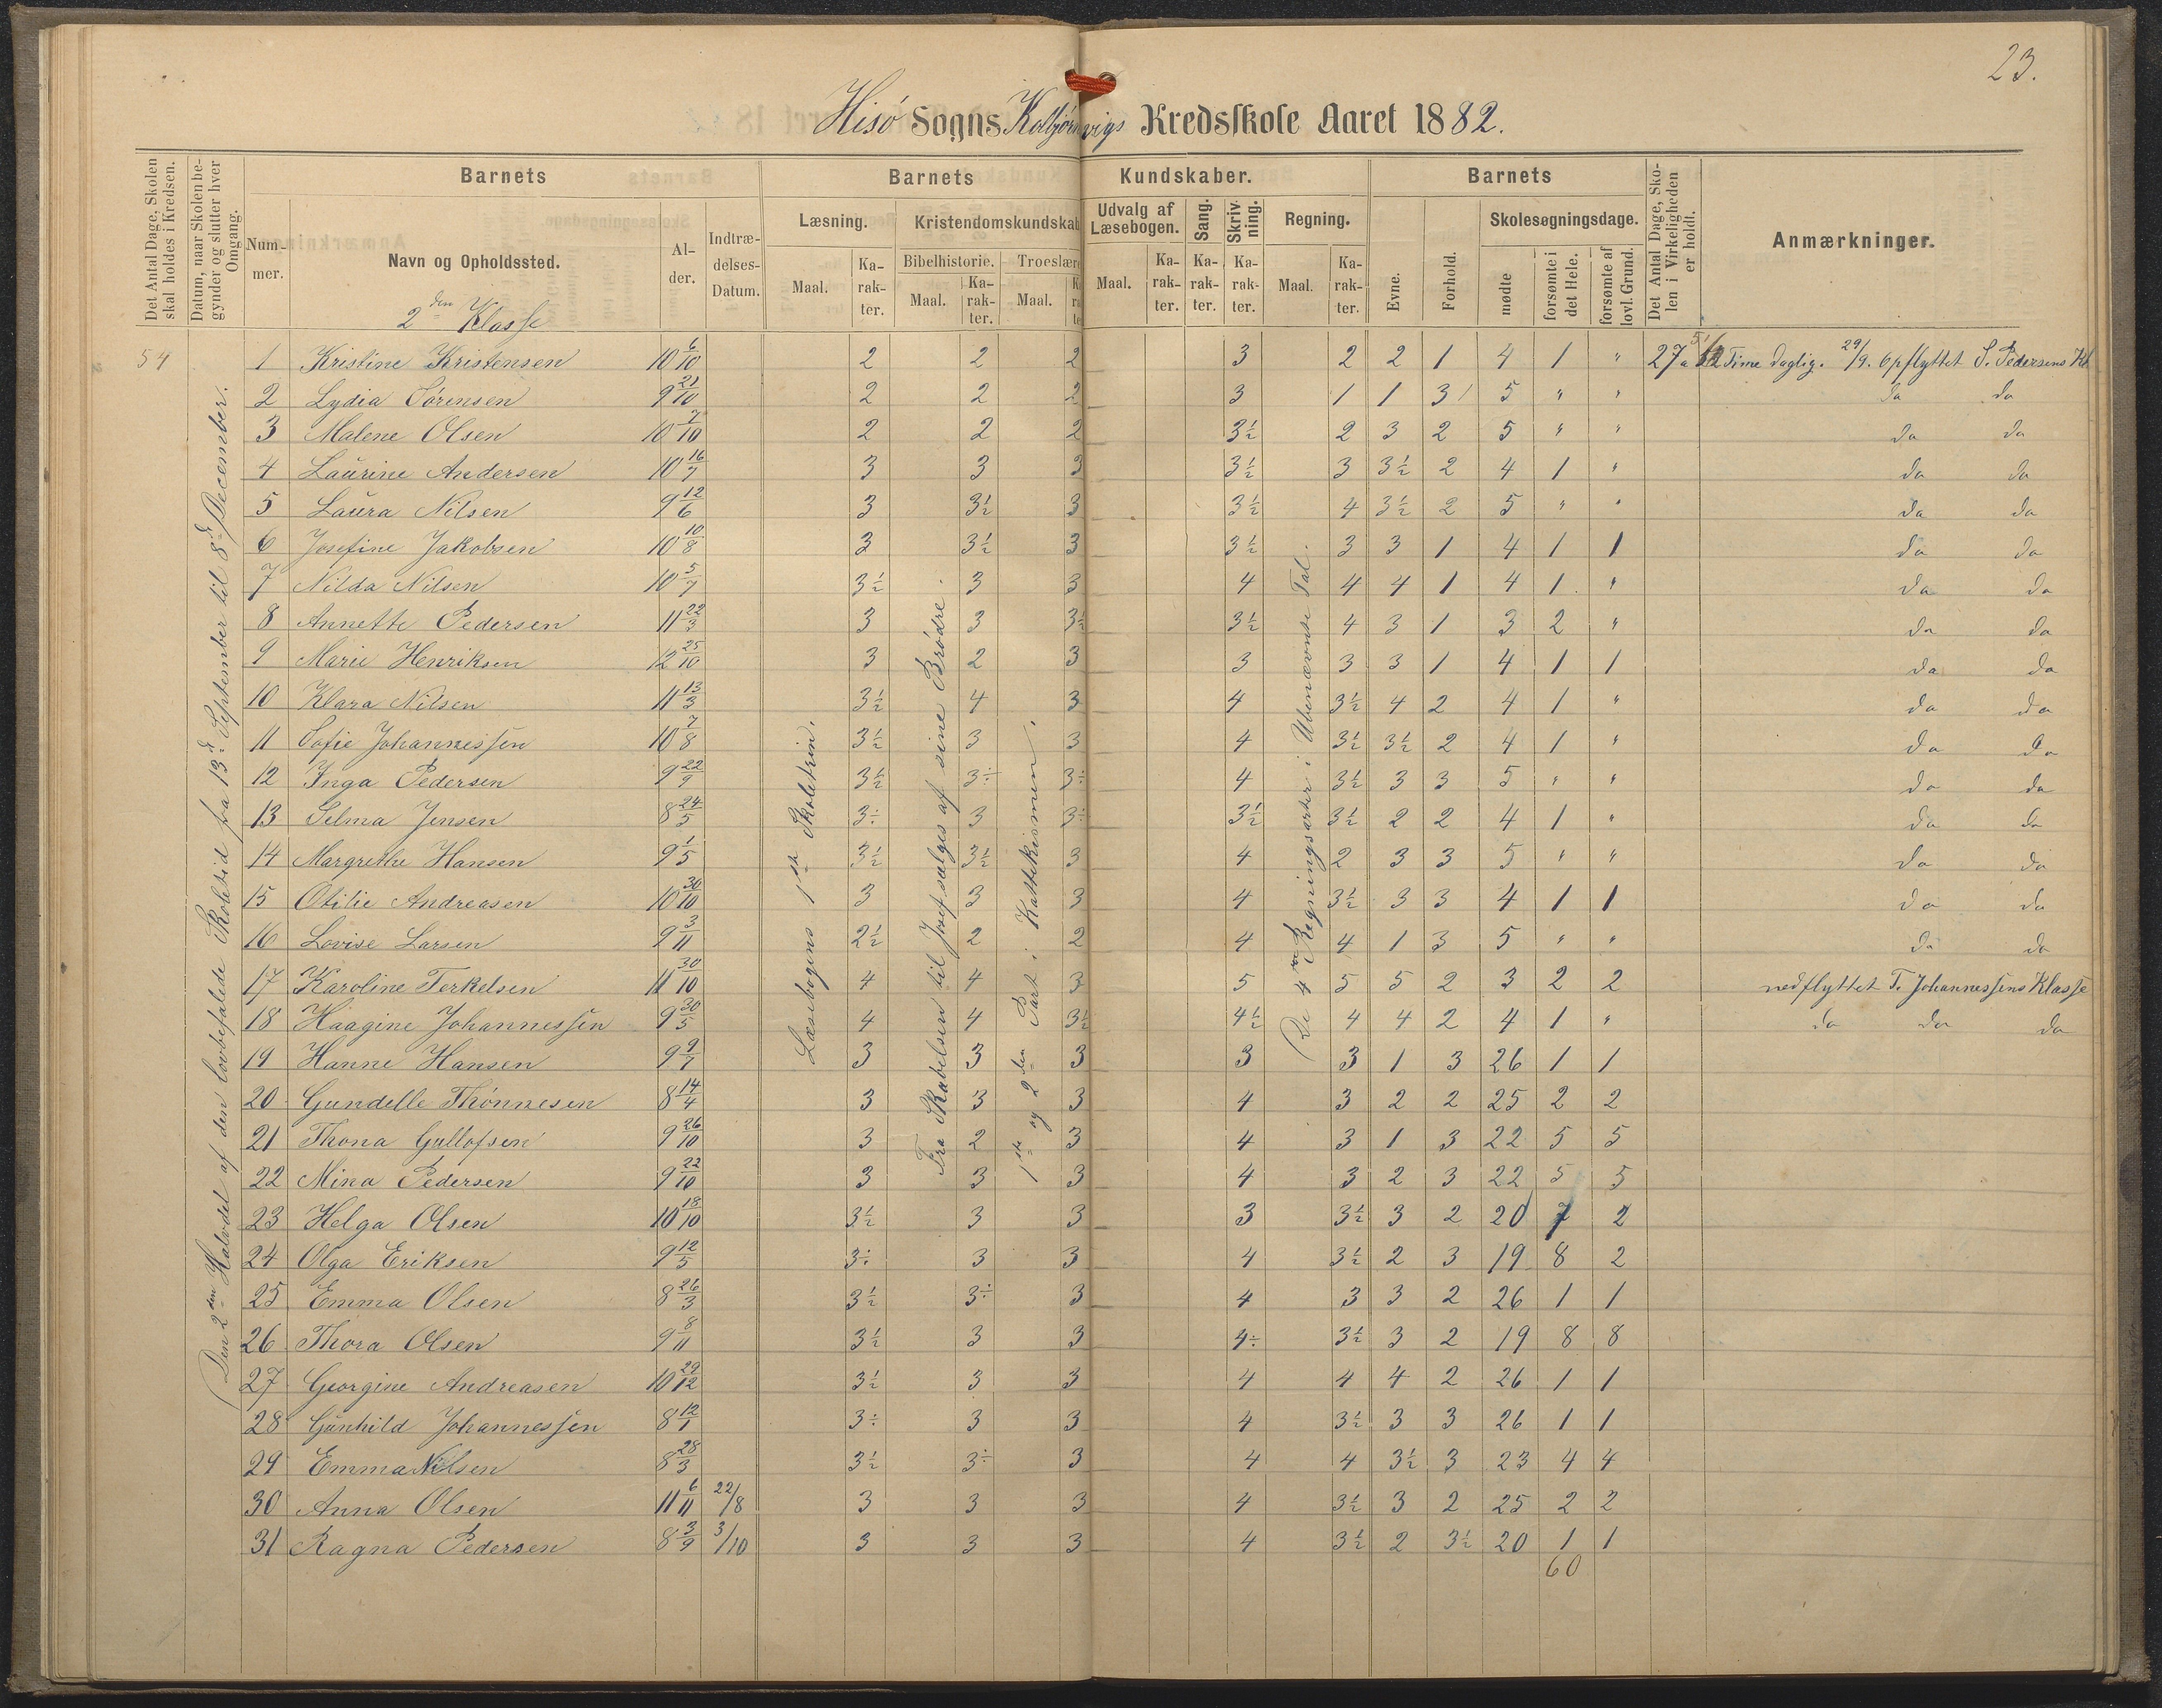 23.
Hisö Sogns Kolbjørnsvigs Kredsskole Aaret 1882.
Det Antal Dage, Skolen skal holdes i Kredsen.
Datum, naar Skolen begynder og slutter hver Omgang.
Barnets
Nummer.
Navn og Opholdssted.
Alder.
Indtrædelses-Datum.
Barnets Kundskaber.
Læsning.
Maal.
Karakter.
Kristendomskundskab
Bibelhistorie.
Maal.
Karakter.
Troeslære
Maal.
Udvalg af Læsebogen.
Maal.
Karakter.
Sang.
Karakter.
Skrivning.
Karakter.
Regning.
Maal.
Karakter.
Barnets
Evne.
Forhold.
Skolesøgningsdage.
mødte
forsømte i det Hele.
forsømte af lovl. Grund.
Det Antal Dage, Skolen i Virkeligheden er holdt.
Anmærkninger.
2den Klasse
54
Den 2den Halvdel af den lovbefalede Skoletid fra 13de September til 8de December.
Læsebogens 1ste Skoletrin.
Fra Skabelsen til Josef sælges af sine Brødre.
1ste og 2den Part i Kattekismen.
De 4re Regningsarter i Ubenævnte Tal.
1 Kristine Kristensen 10 6/10 2 2 2 3 2 2 1 4 1 " 27 a 5 1/2 Time daglig. 29/9. Opflyttet S. Pedersens Kl
2 Lydia Sørensen 9 21/10 2 2 2 3 1 1 3 5 " " da da
3 Malene Olsen 10 7/10 2 2 2 3½ 2 3 2 5 " " da da
4 Laurine Andersen 10 16/7 3 3 3 3½ 3 3½ 2 4 1 " da da
5 Laura Nilsen 9 12/6 3 3½ 3 3½ 4 3½ 2 5 " " da da
6 Josefine Jakobsen 10 10/8 3 3½ 3 3½ 3 3 1 4 1 1 da da
7 Nilda Nilsen 10 5/7 3½ 3 3 4 4 4 1 4 1 " da da
8 Annette Pedersen 11 22/3 3 3 3½ 3½ 4 3 1 3 2 " da da
9 Marie Henriksen 12 25/10 3 2 3 3 3 3 1 4 1 1 da da
10 Klara Nilsen 11 13/3 3½ 4 3 4 3½ 4 2 4 1 " da da
11 Sofie Johannessen 10 7/8 3½ 3 3 4 3½ 3½ 2 4 1 " da da
12 Inga Pedersen 9 22/9 3½ 3÷ 3÷ 4 3½ 3 3 5 " " da da
13 Selma Jensen 8 24/5 3÷ 3 3÷ 3½ 3½ 2 2 4 1 " da da
14 Margrethe Hansen 9 1/5 3½ 3½ 3 4 2 3 3 5 " " da da
15 Otilie Andreasen 10 30/10 3 3 3 4 3½ 3 3 4 1 1 da da
16 Lovise Larsen 9 3/11 2½ 2 2 4 4 1 3 5 " " da da
17 Karoline Terkelsen 11 30/10 4 4 3 5 5 5 2 3 2 2 nedflyttet T. Johannessens Klasse
18 Haagine Johannessen 9 30/5 4 4 3½ 4½ 4 4 2 4 1 " da da da
19 Hanne Hansen 9 9/7 3 3 3 3 3 1 3 26 1 1
20 Gundelle Thönnesen 8 14/4 3 3 3 4 3 2 2 25 2 2
21 Thona Gullofsen 9 26/10 3 2 3 4 3 1 3 22 5 5
22 Mina Pedersen 9 22/10 3 3 3 4 3 2 3 22 5 5
23 Helga Olsen 10 18/10 3½ 3 3 3 3½ 3 2 20 7 2
24 Olga Eriksen 9 12/5 3÷ 3 3 4 3½ 2 3 19 8 2
25 Emma Olsen 8 26/3 3½ 3÷ 3 4 3 3 2 26 1 1
26 Thora Olsen 9 8/11 3½ 3 3 4÷ 3½ 3 2 19 8 8
27 Georgine Andreasen 10 29/12 3½ 3 3 4 4 4 2 26 1 1
28 Gunhild Johannessen 8 12/1 3÷ 3 3 4 3½ 3 3 26 1 1
29 Emma Nilsen 8 28/3 3½ 3÷ 3 4 4 3½ 3 23 4 4
30 Anna Olsen 11 6/11 22/8 3 3 3 4 3½ 3 2 25 2 2
31 Ragna Pedersen 8 3/9 3/10 3 3 3 4 3½ 2 3½ 20 1 1
60